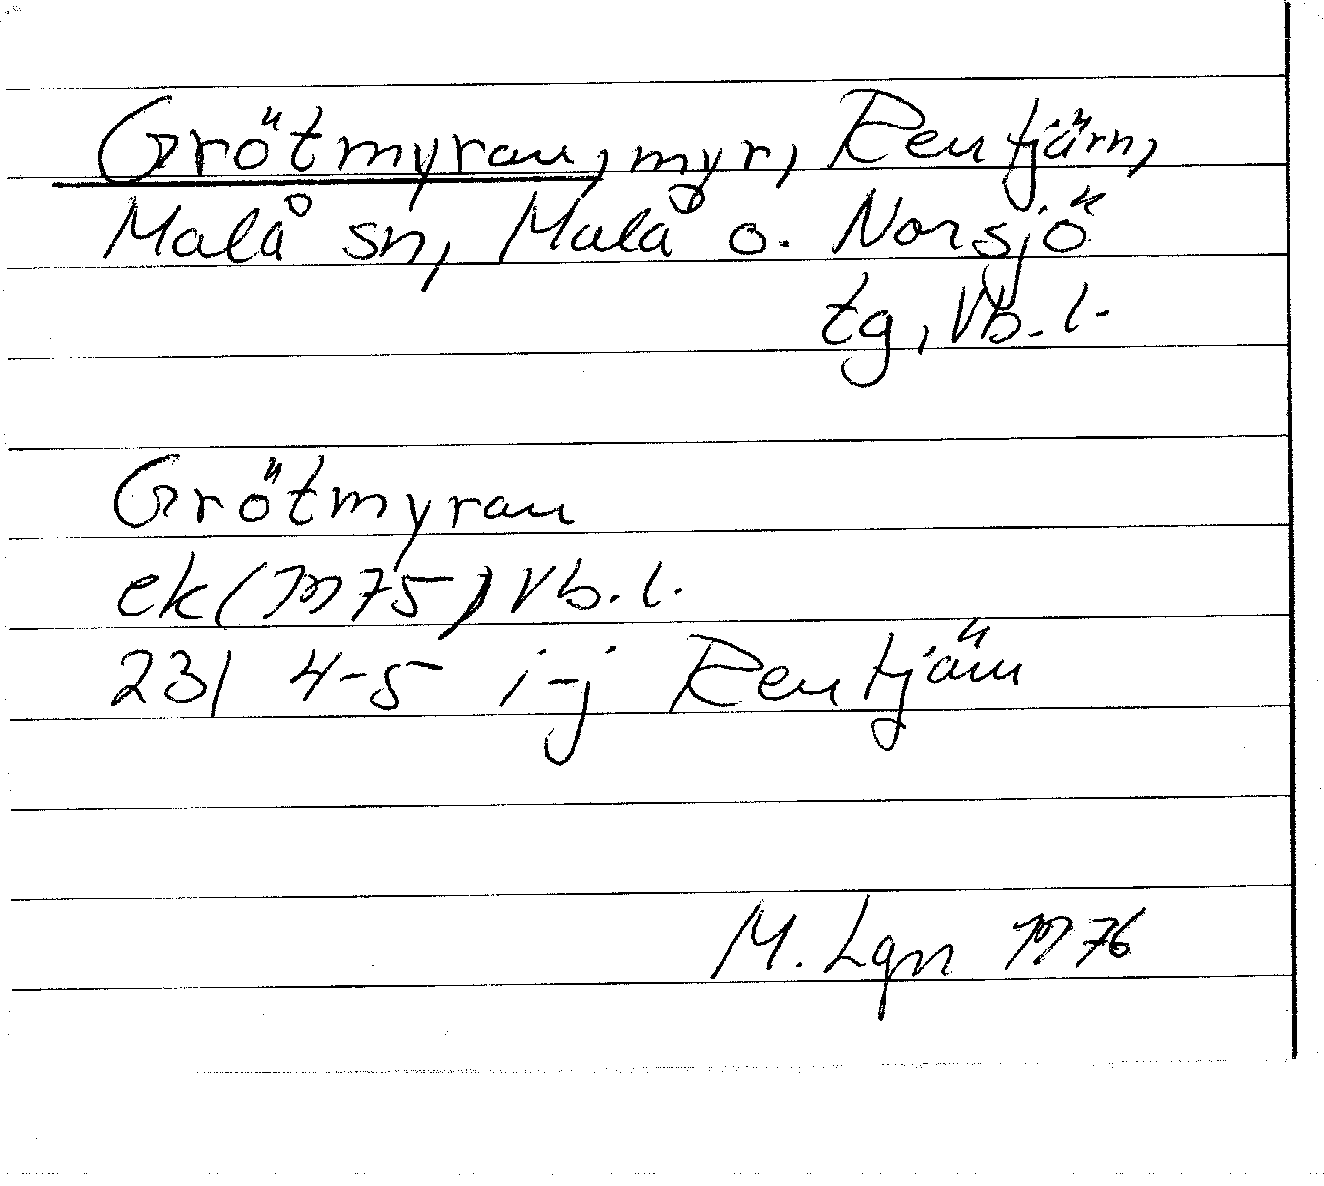 Grötmyran, myr, Rentjärn,
Malå sn, Malå o. Norsjö
tg, Vb. l.
Grötmyran
ek (1975) Vb. l.
231 4-5 i-j Rentjärn
M. Lgn 1976